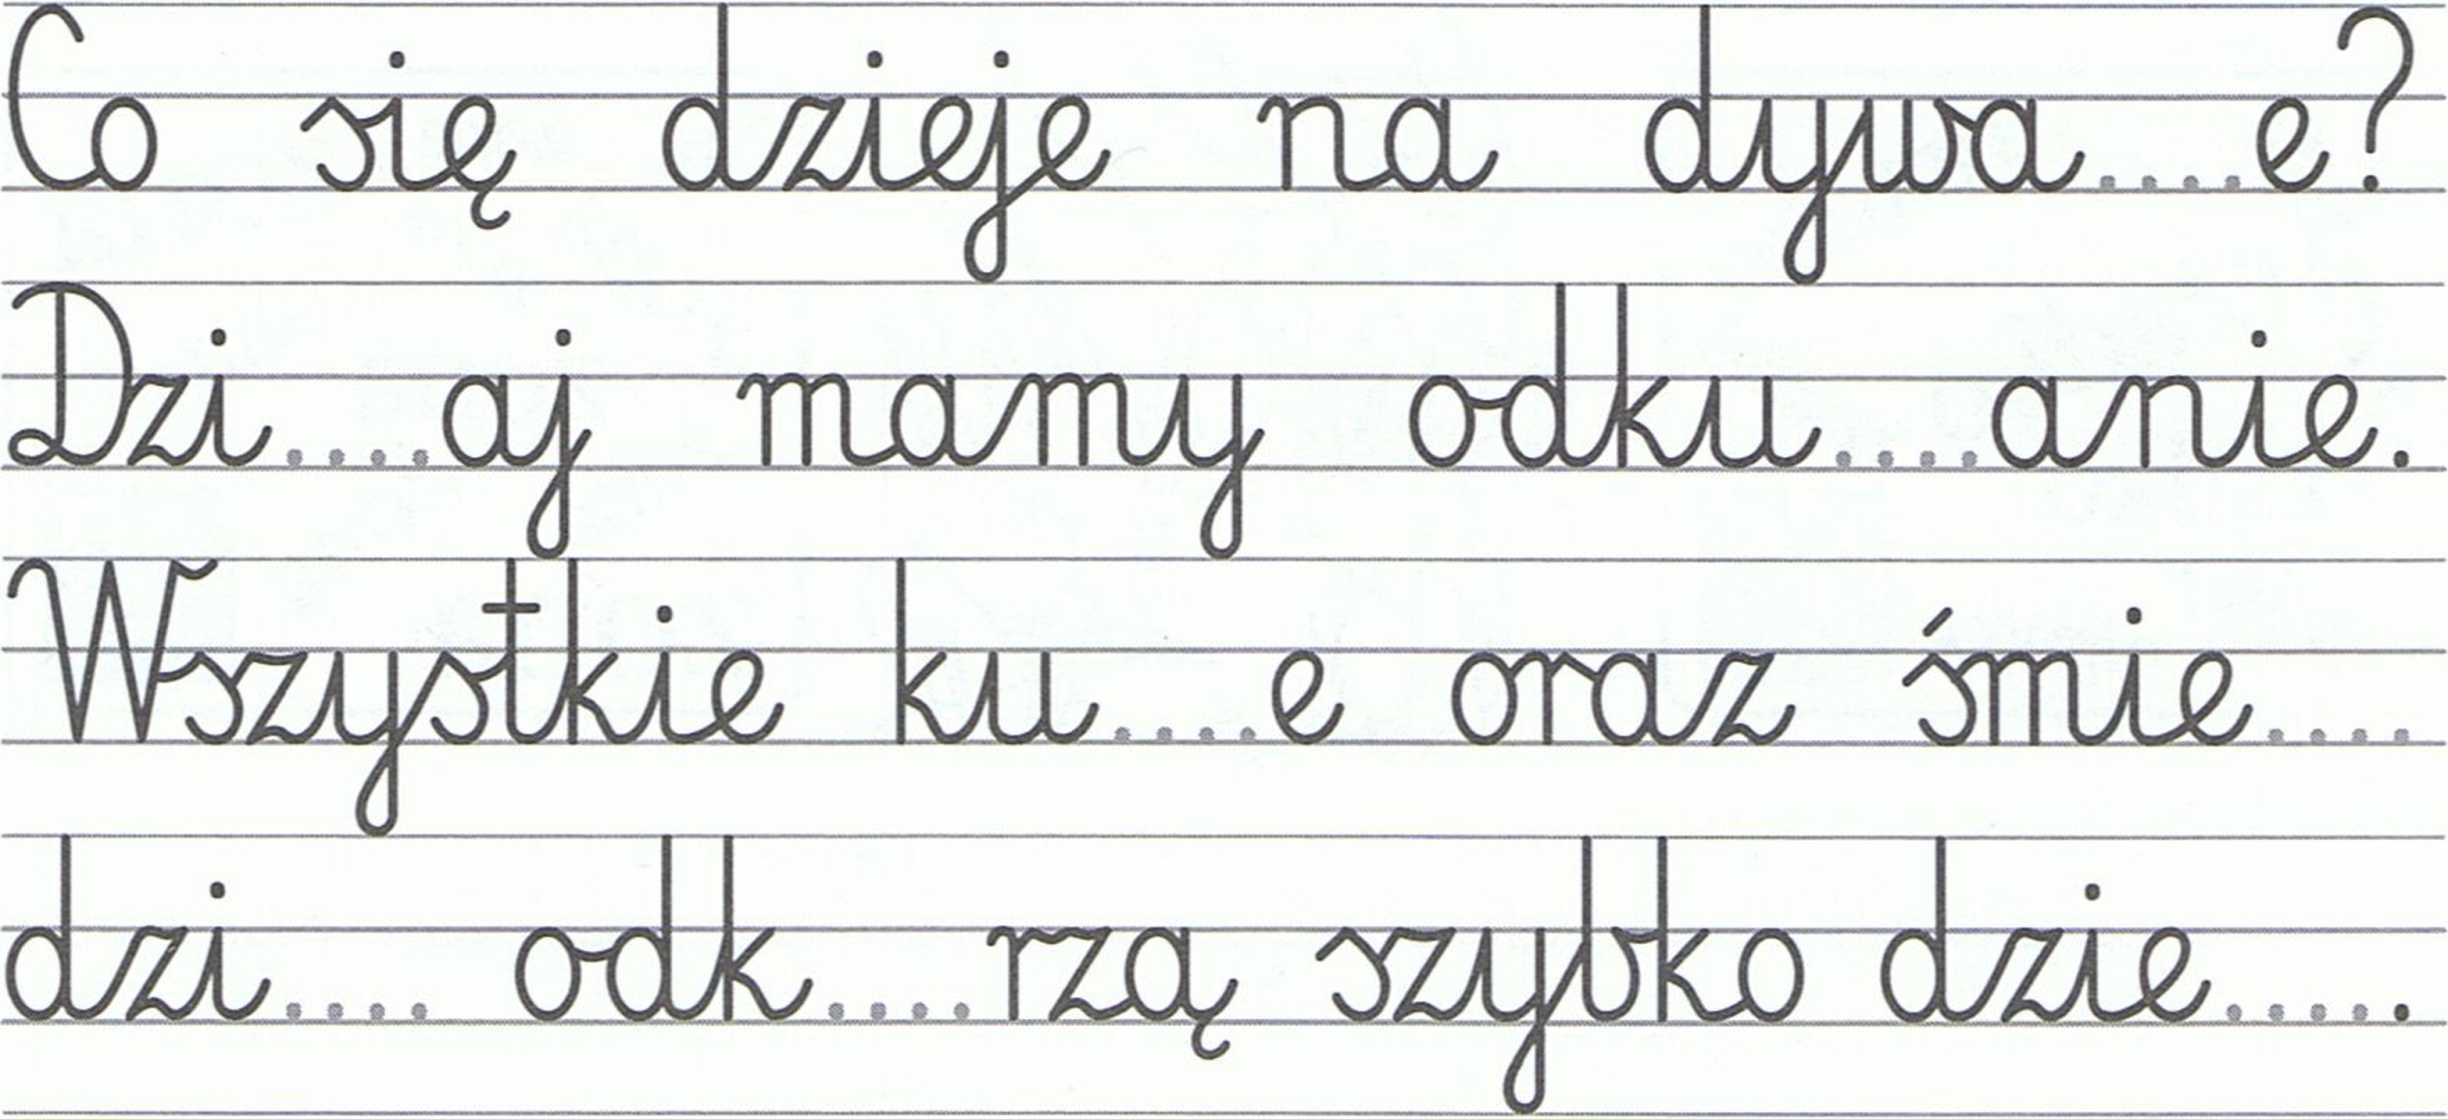 Co się dzieje na dywa....e?
Dzi....aj mamy odku....anie.
Wszystkie ku....e oraz śmie....
dzi.... odk....rzą szybko dzie.....